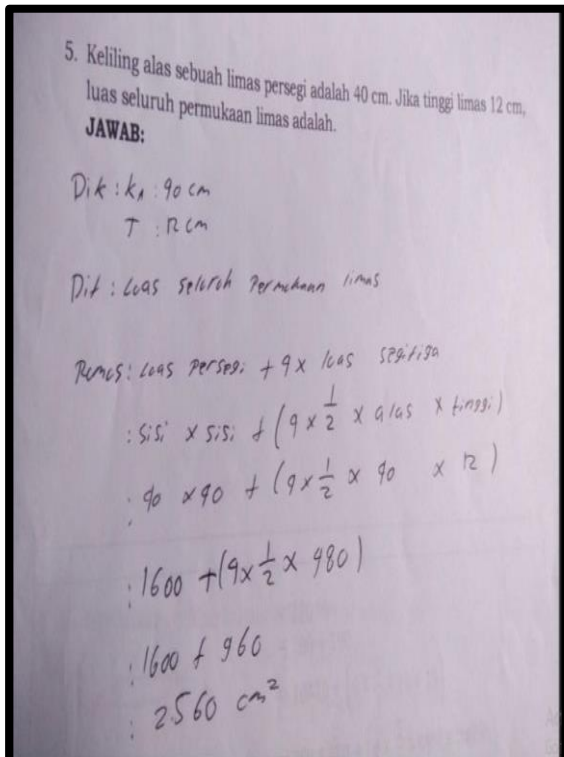 5. Keliling alas sebuah limas persegi adalah 40 cm. Jika tinggi limas 12 cm,
luas seluruh permukaan limas adalah.
JAWAB:
Dik : kA : 40 cm
T : 12 cm
Dit : Luas seluruh Permukaan limas
Rumus : Luas persegi + 4 x luas segitiga
: sisi x sisi + (4 x 1/2 x alas x tinggi)
: 40 x 40 + (4 x 1/2 x 40 x 12)
: 1600 + (4 x 1/2 x 480)
: 1600 + 960
: 2560 cm²